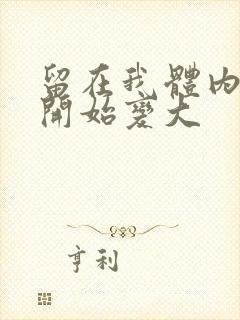 留在我體內
開始變大
亨利